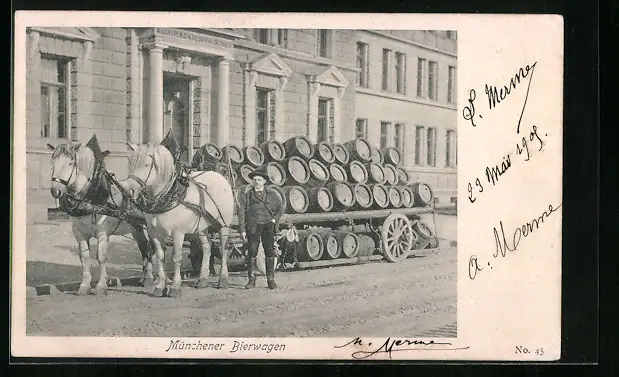 S. Merme
23 Mai 1905
A. Merme
Münchener Bierwagen
M. Merme
No. 45